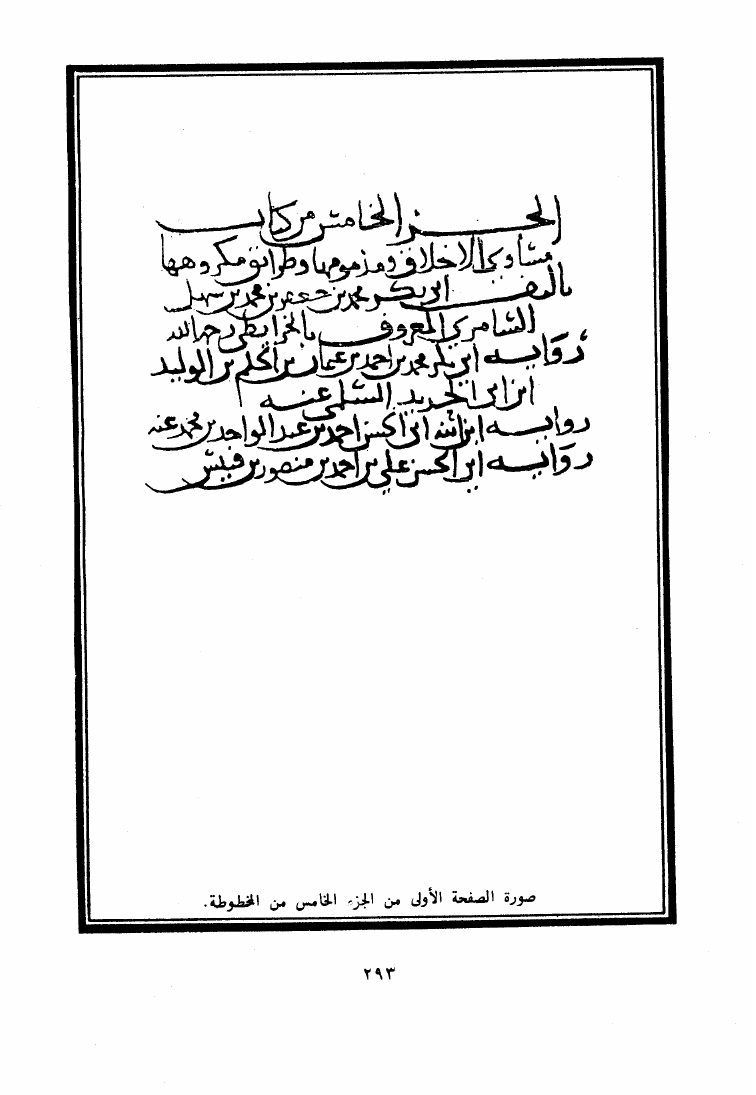 الجزء الخامس من كتاب
مساوئ الاخلاق ومذمومها وطرائق مكروهها
تاليف ابي بكر محمد بن جعفر بن محمد بن سهل
السامري المعروف بالخرائطي رحمه الله
رواية ابي بكر محمد بن احمد بن عثمان بن الوليد
ابن ابي الحديد السلمي عنه
رواية ابنه ابي الحسن احمد بن عبد الواحد بن محمد عنه
رواية ابي الحسن علي بن احمد بن منصور بن قبيس
صورة الصفحة الأولى من الجزء الخامس من المخطوطة.
٢٩٣